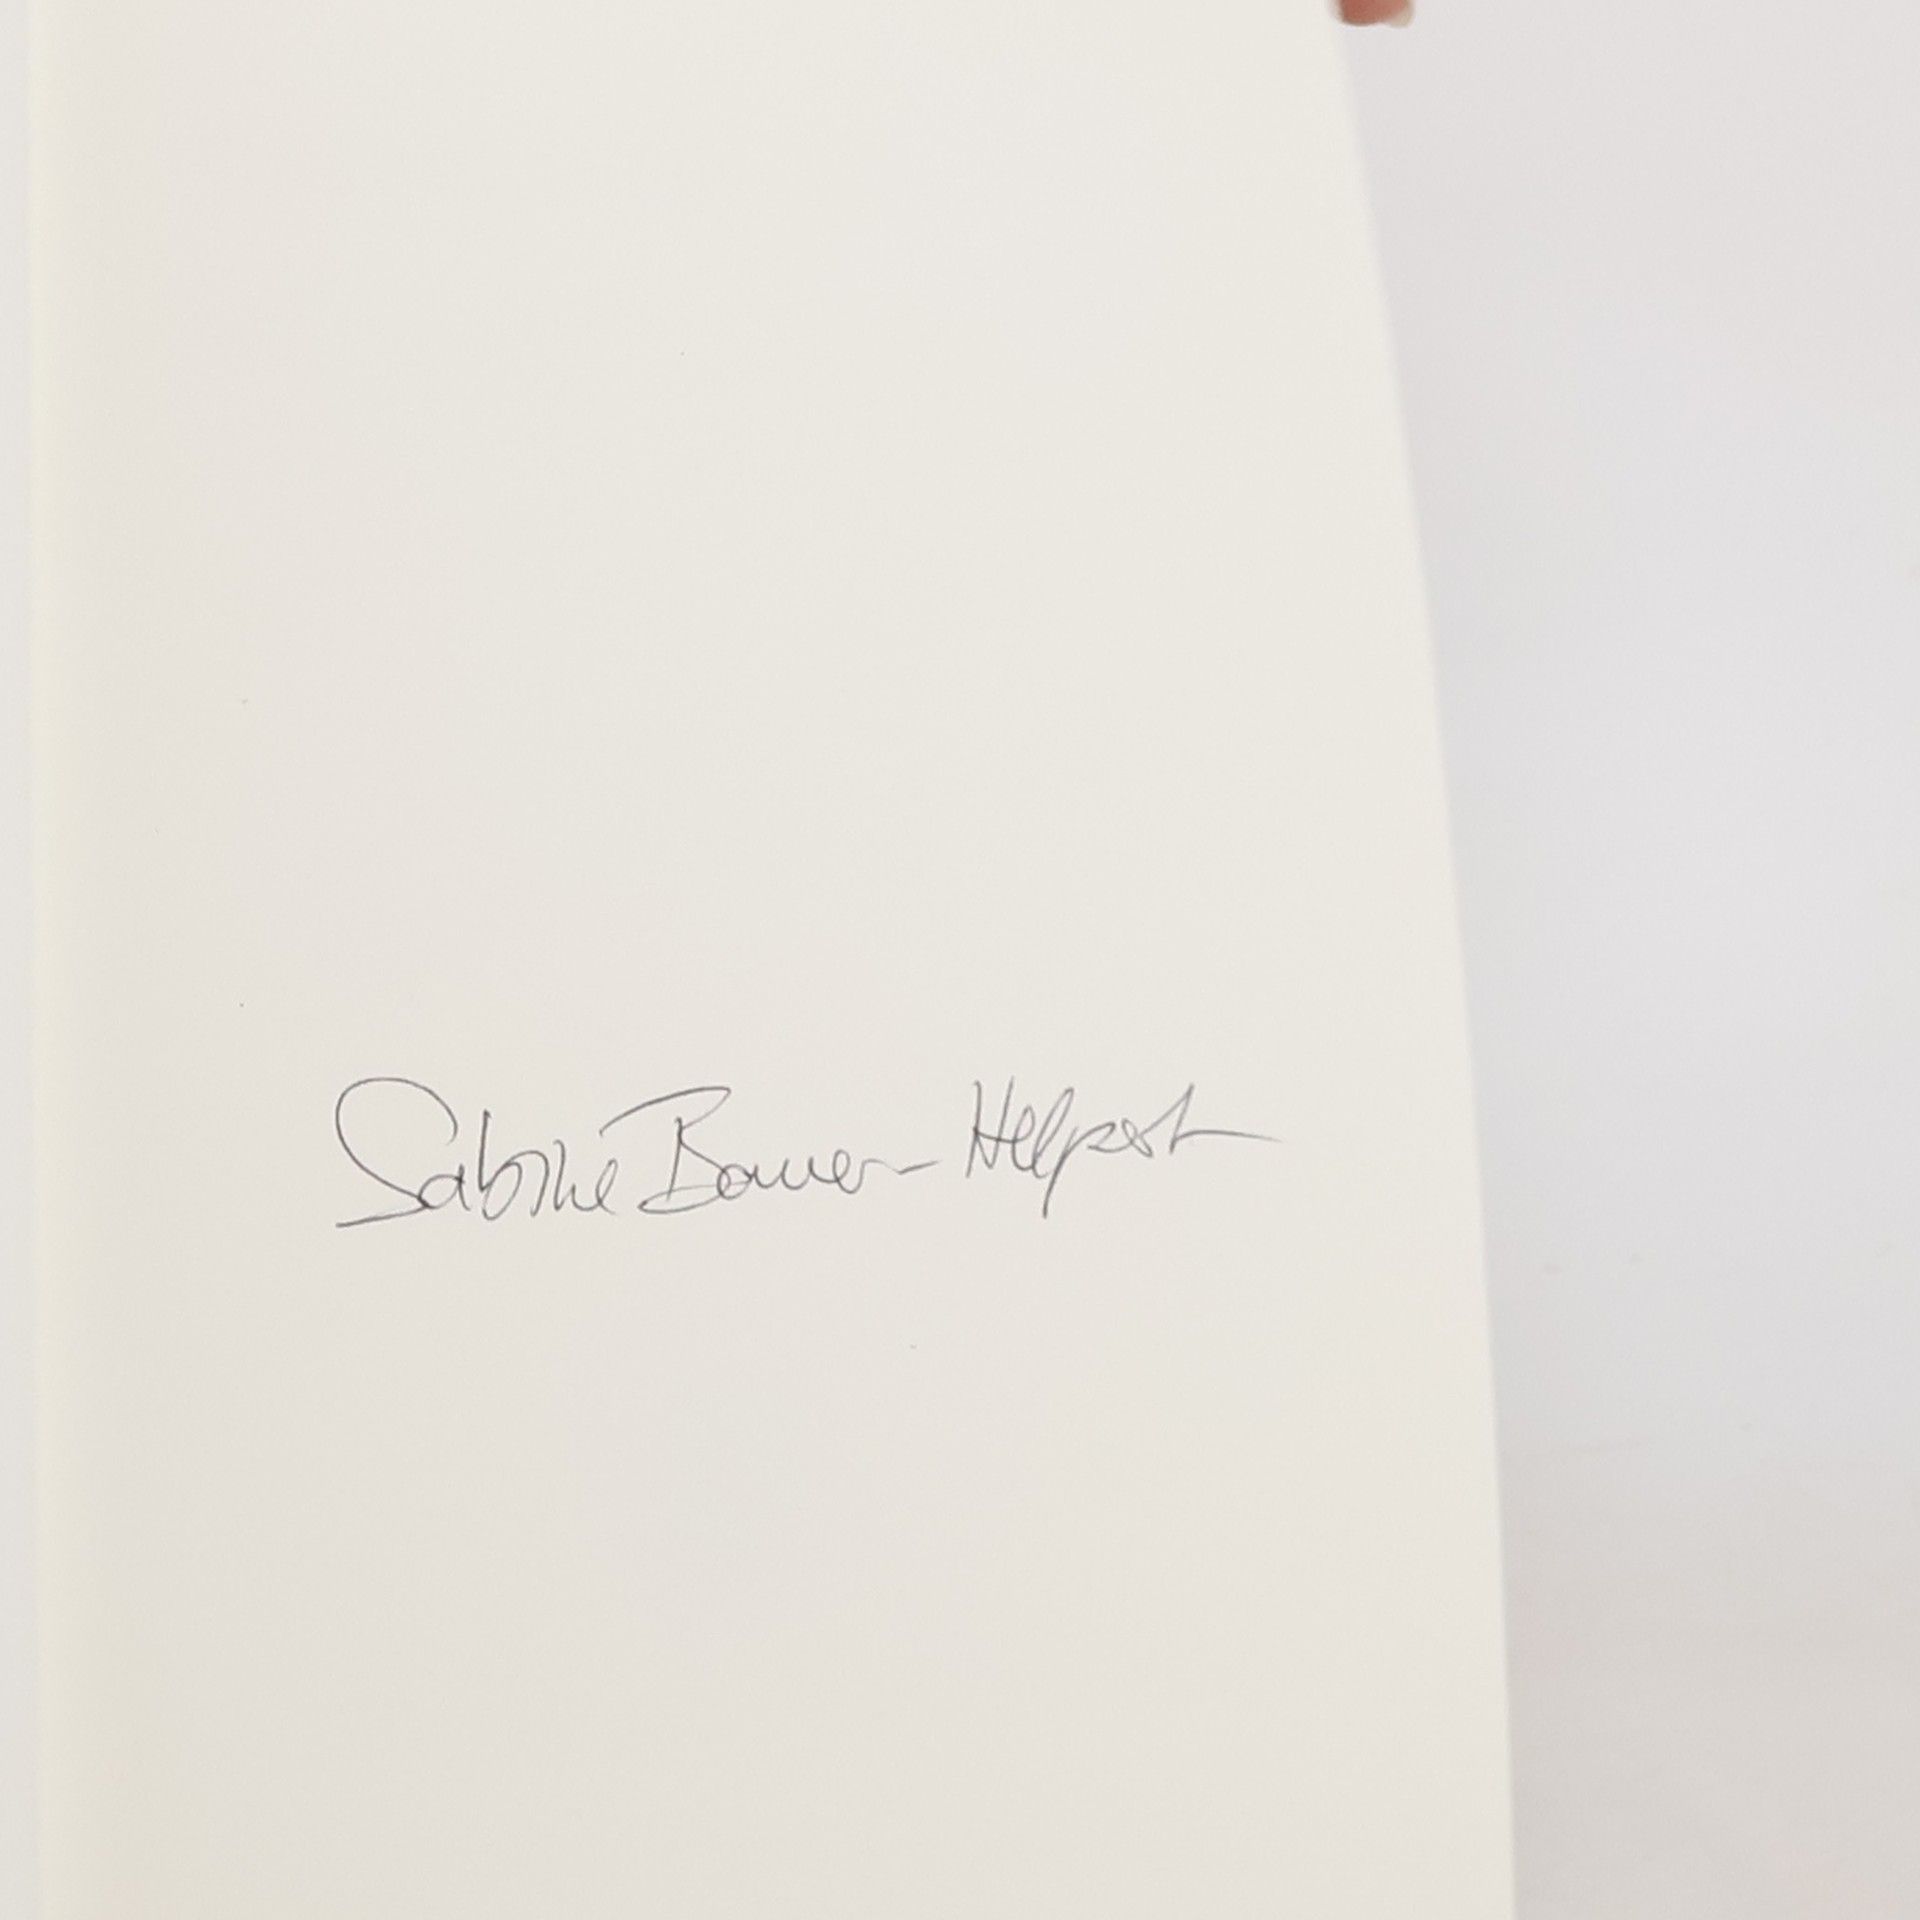 Sabine Bauer-Helpert